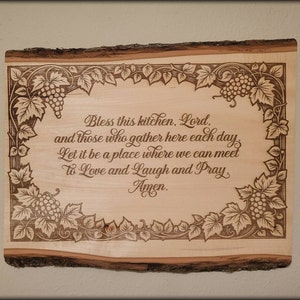 Bless this kitchen, Lord,
and those who gather here each day.
Let it be a place where we can meet
to Love and Laugh and Pray.
Amen.